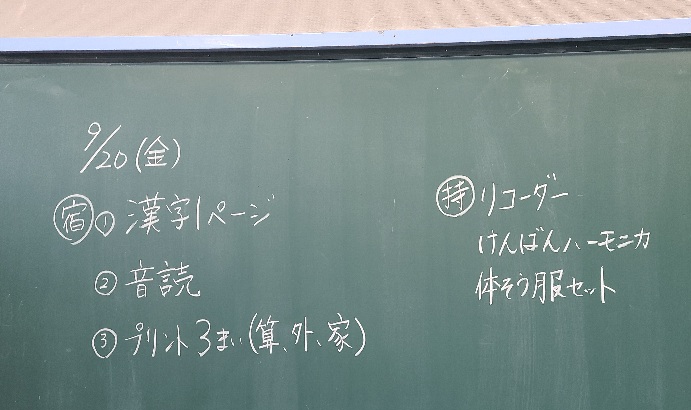 9/20(金)
宿 ① 漢字1ページ
② 音読
③ プリント3まい(算、外、家)
持 リコーダー
けんばんハーモニカ
体そう服セット